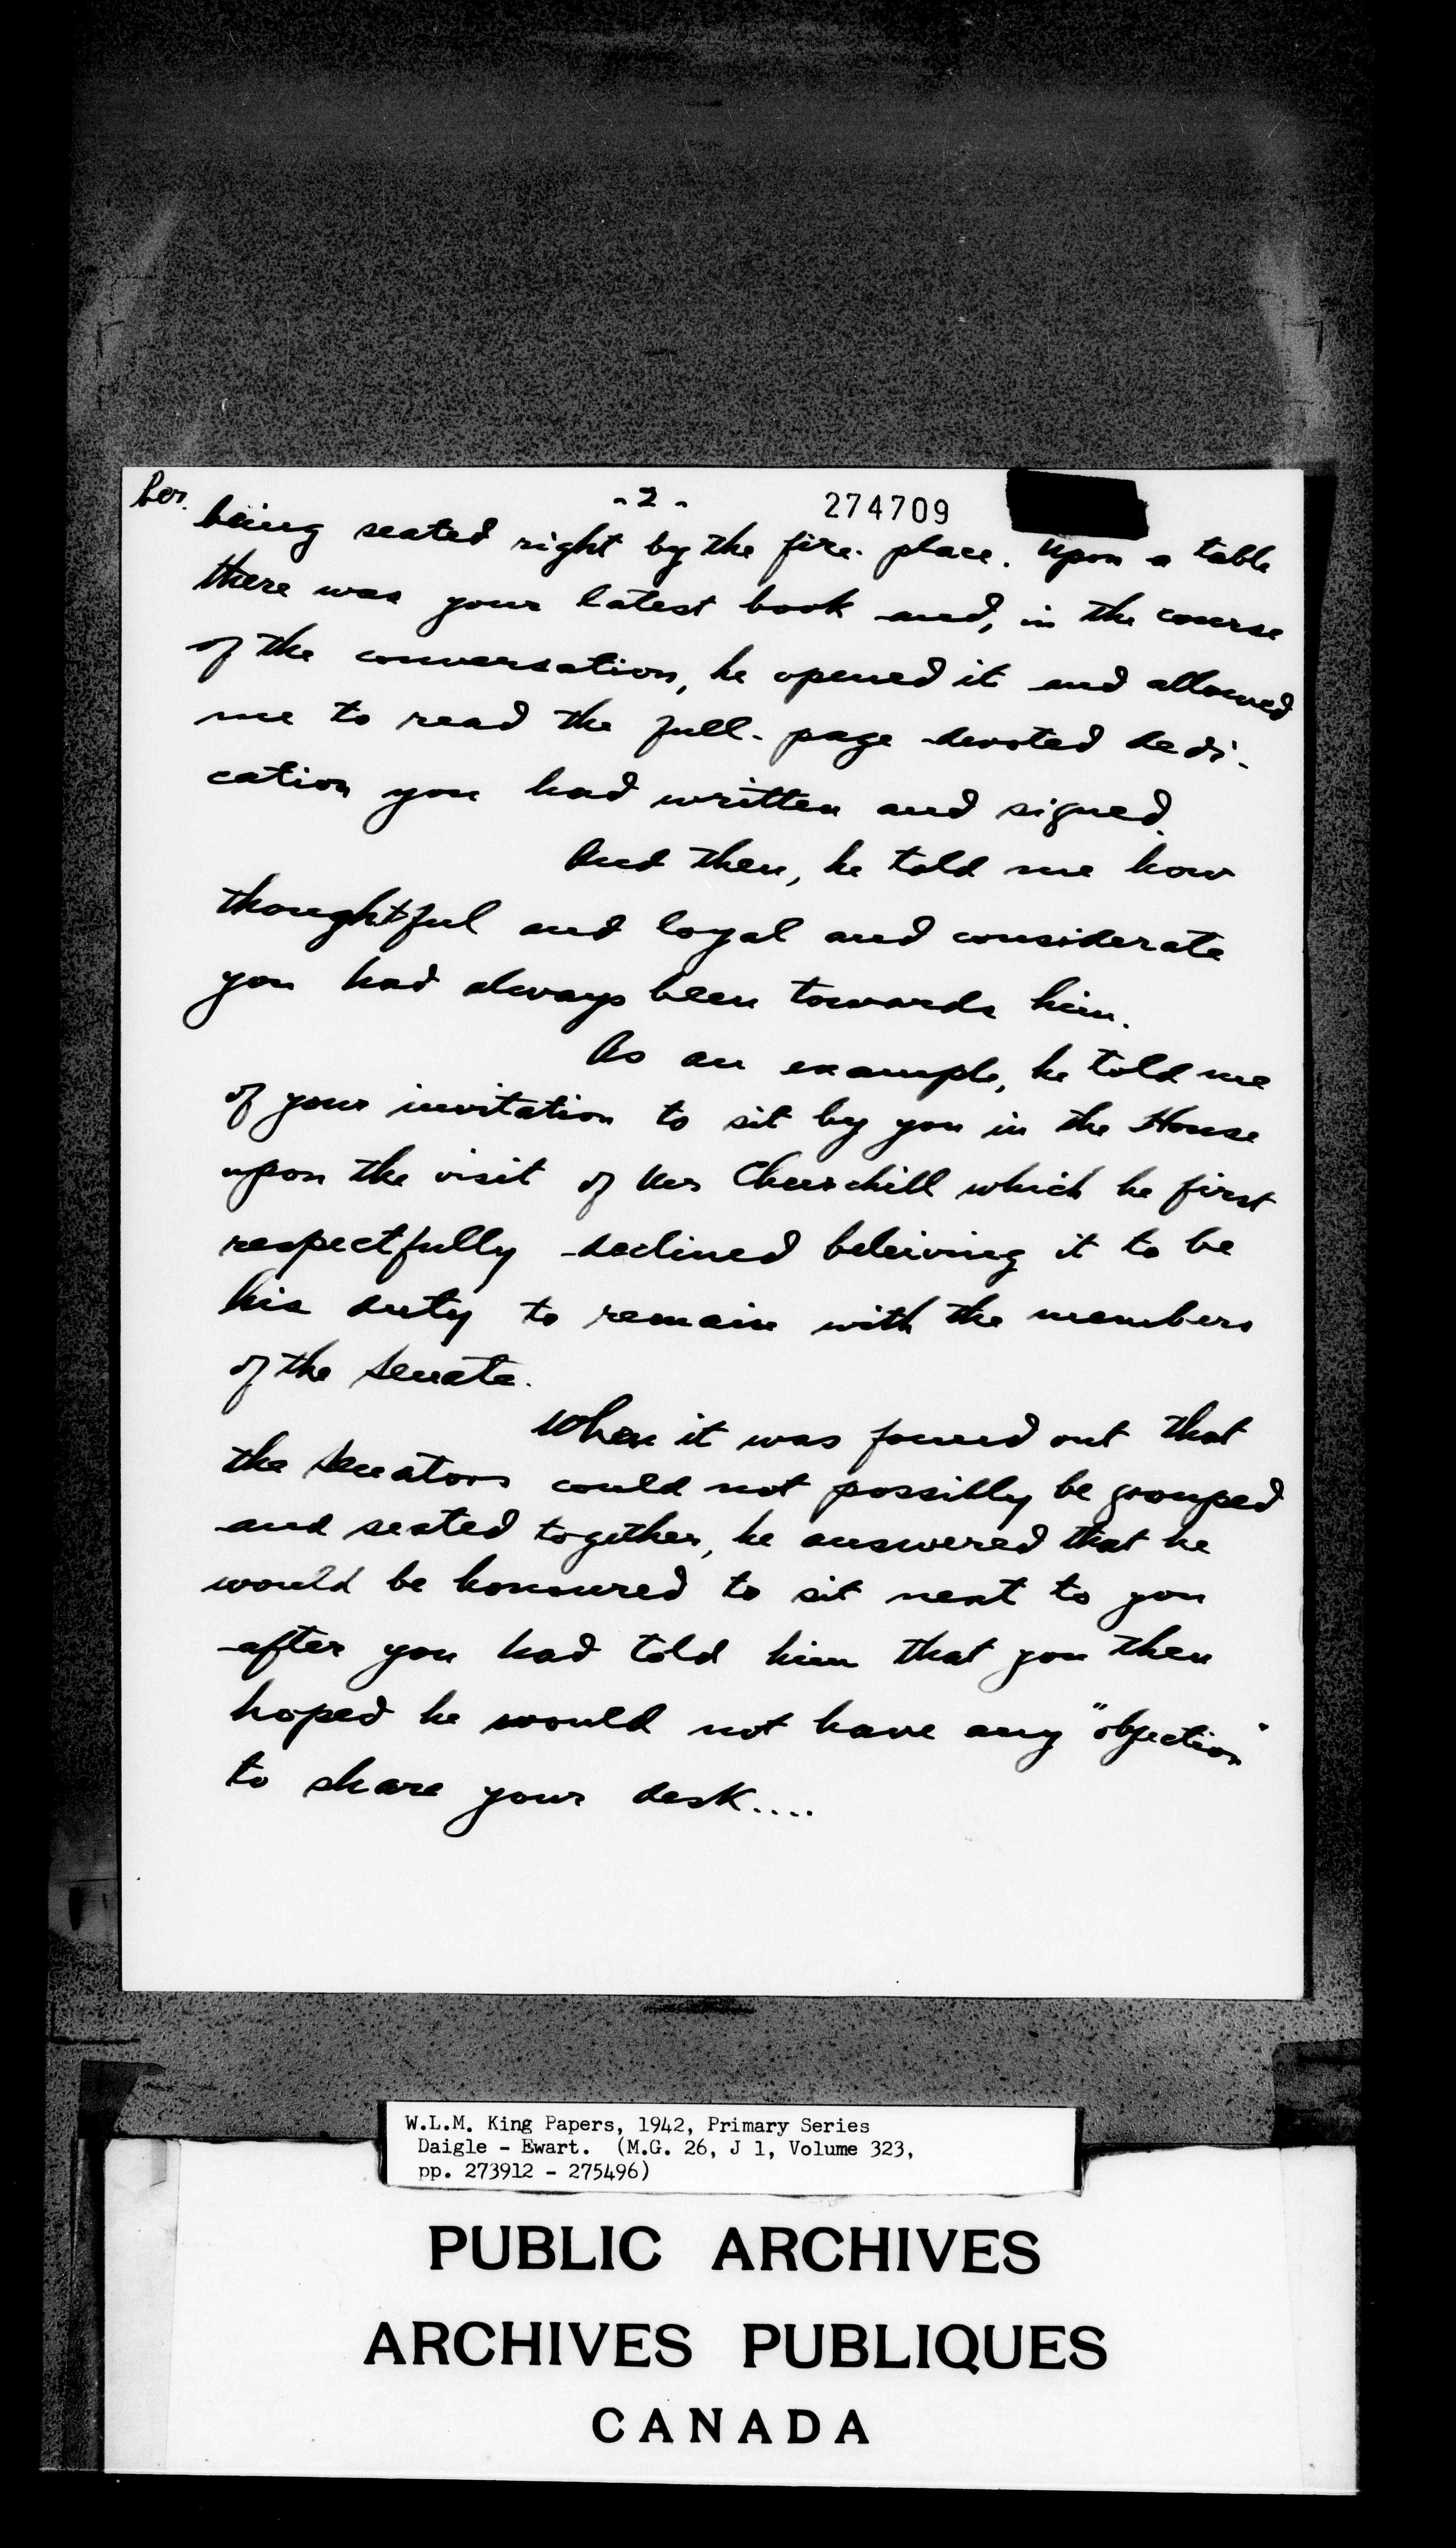 - 2 -
274709
being seated right by the fire-place. Upon a table
there was your latest book and, in the course
of the conversation, he opened it and allowed
me to read the full-page devoted dedi-
cation you had written and signed.
And then, he told me how
thoughtful and loyal and considerate
you had always been towards him.
As an example, he told me
of your invitation to sit by you in the House
upon the visit of Mr Churchill which he first
respectfully declined beleiving it to be
his duty to remain with the members
of the Senate.
When it was found out that
the Senators could not possibly be grouped
and seated together, he answered that he
would be honoured to sit next to you
after you had told him that you then
hoped he would not have any "objection"
to share your desk....
W.L.M. King Papers, 1942, Primary Series
Daigle - Ewart. (M.G. 26, J 1, Volume 323,
pp. 273912 - 275496)
PUBLIC ARCHIVES
ARCHIVES PUBLIQUES
CANADA